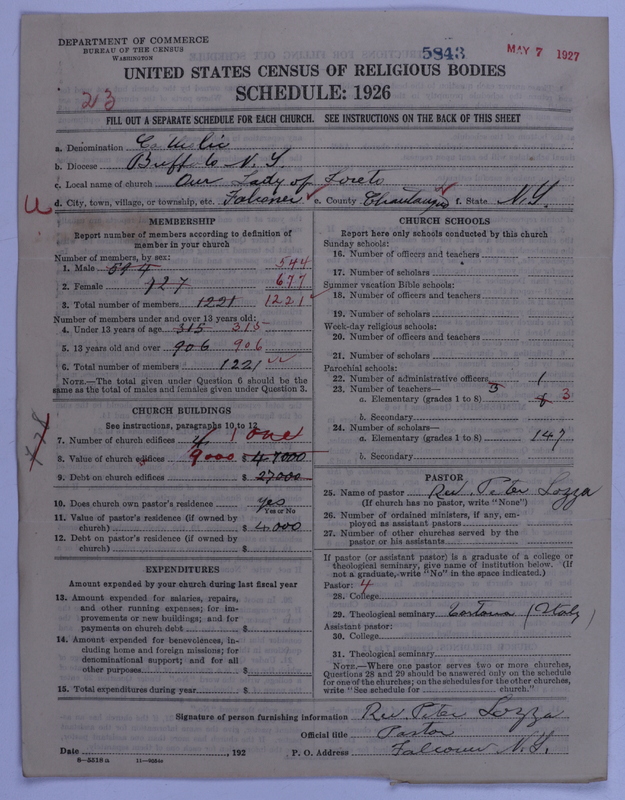 DEPARTMENT OF COMMERCE
BUREAU OF THE CENSUS
WASHINGTON
5843
MAY 7 1927
UNITED STATES CENSUS OF RELIGIOUS BODIES
23
SCHEDULE: 1926
FILL OUT A SEPARATE SCHEDULE FOR EACH CHURCH. SEE INSTRUCTIONS ON THE BACK OF THIS SHEET
a. Denomination Catholic
b. Diocese Buffalo N.Y.
c. Local name of church Our Lady of Loreto
d. City, town, village, or township, etc. Falconer e. County Chautauqua f. State N.Y.
MEMBERSHIP
Report number of members according to definition of
member in your church
Number of members, by sex:
1. Male 594 544
2. Female 727 677
3. Total number of members 1221 1221
Number of members under and over 13 years old:
4. Under 13 years of age 315 315
5. 13 years old and over 906 906
6. Total number of members 1221
NOTE.—The total given under Question 6 should be the
same as the total of males and females given under Question 3.
CHURCH BUILDINGS
See instructions, paragraphs 10 to 12
7. Number of church edifices 1 one
8. Value of church edifices 9000 $ 47000
9. Debt on church edifices $ 27000
10. Does church own pastor's residence yes
Yes or No
11. Value of pastor's residence (if owned by
church) $ 4000
12. Debt on pastor's residence (if owned by
church) $
EXPENDITURES
Amount expended by your church during last fiscal year
13. Amount expended for salaries, repairs,
and other running expenses; for im-
provements or new buildings; and for
payments on church debt $
14. Amount expended for benevolences, in-
cluding home and foreign missions; for
denominational support; and for all
other purposes $
15. Total expenditures during year $
CHURCH SCHOOLS
Report here only schools conducted by this church
Sunday schools:
16. Number of officers and teachers
17. Number of scholars
Summer vacation Bible schools:
18. Number of officers and teachers
19. Number of scholars
Week-day religious schools:
20. Number of officers and teachers
21. Number of scholars
Parochial schools:
22. Number of administrative officers 1
23. Number of teachers— 3
a. Elementary (grades 1 to 8) 3
b. Secondary
24. Number of scholars—
a. Elementary (grades 1 to 8) 147
b. Secondary
PASTOR
25. Name of pastor Rev. Peter Lozza
(If church has no pastor, write "None")
26. Number of ordained ministers, if any, em-
ployed as assistant pastors
27. Number of other churches served by the
pastor or his assistants
If pastor (or assistant pastor) is a graduate of a college or
theological seminary, give name of institution below. (If
not a graduate, write "No" in the space indicated.)
Pastor: 4
28. College
29. Theological seminary Tortona (Italy)
Assistant pastor:
30. College
31. Theological seminary
NOTE.—Where one pastor serves two or more churches,
Questions 28 and 29 should be answered only on the schedule
for one of the churches; on the schedules for the other churches,
write "See schedule for church."
Signature of person furnishing information Rev. Peter Lozza
Official title Pastor
Date , 192 P. O. Address Falconer N.Y.
8—5518a 11—9024a